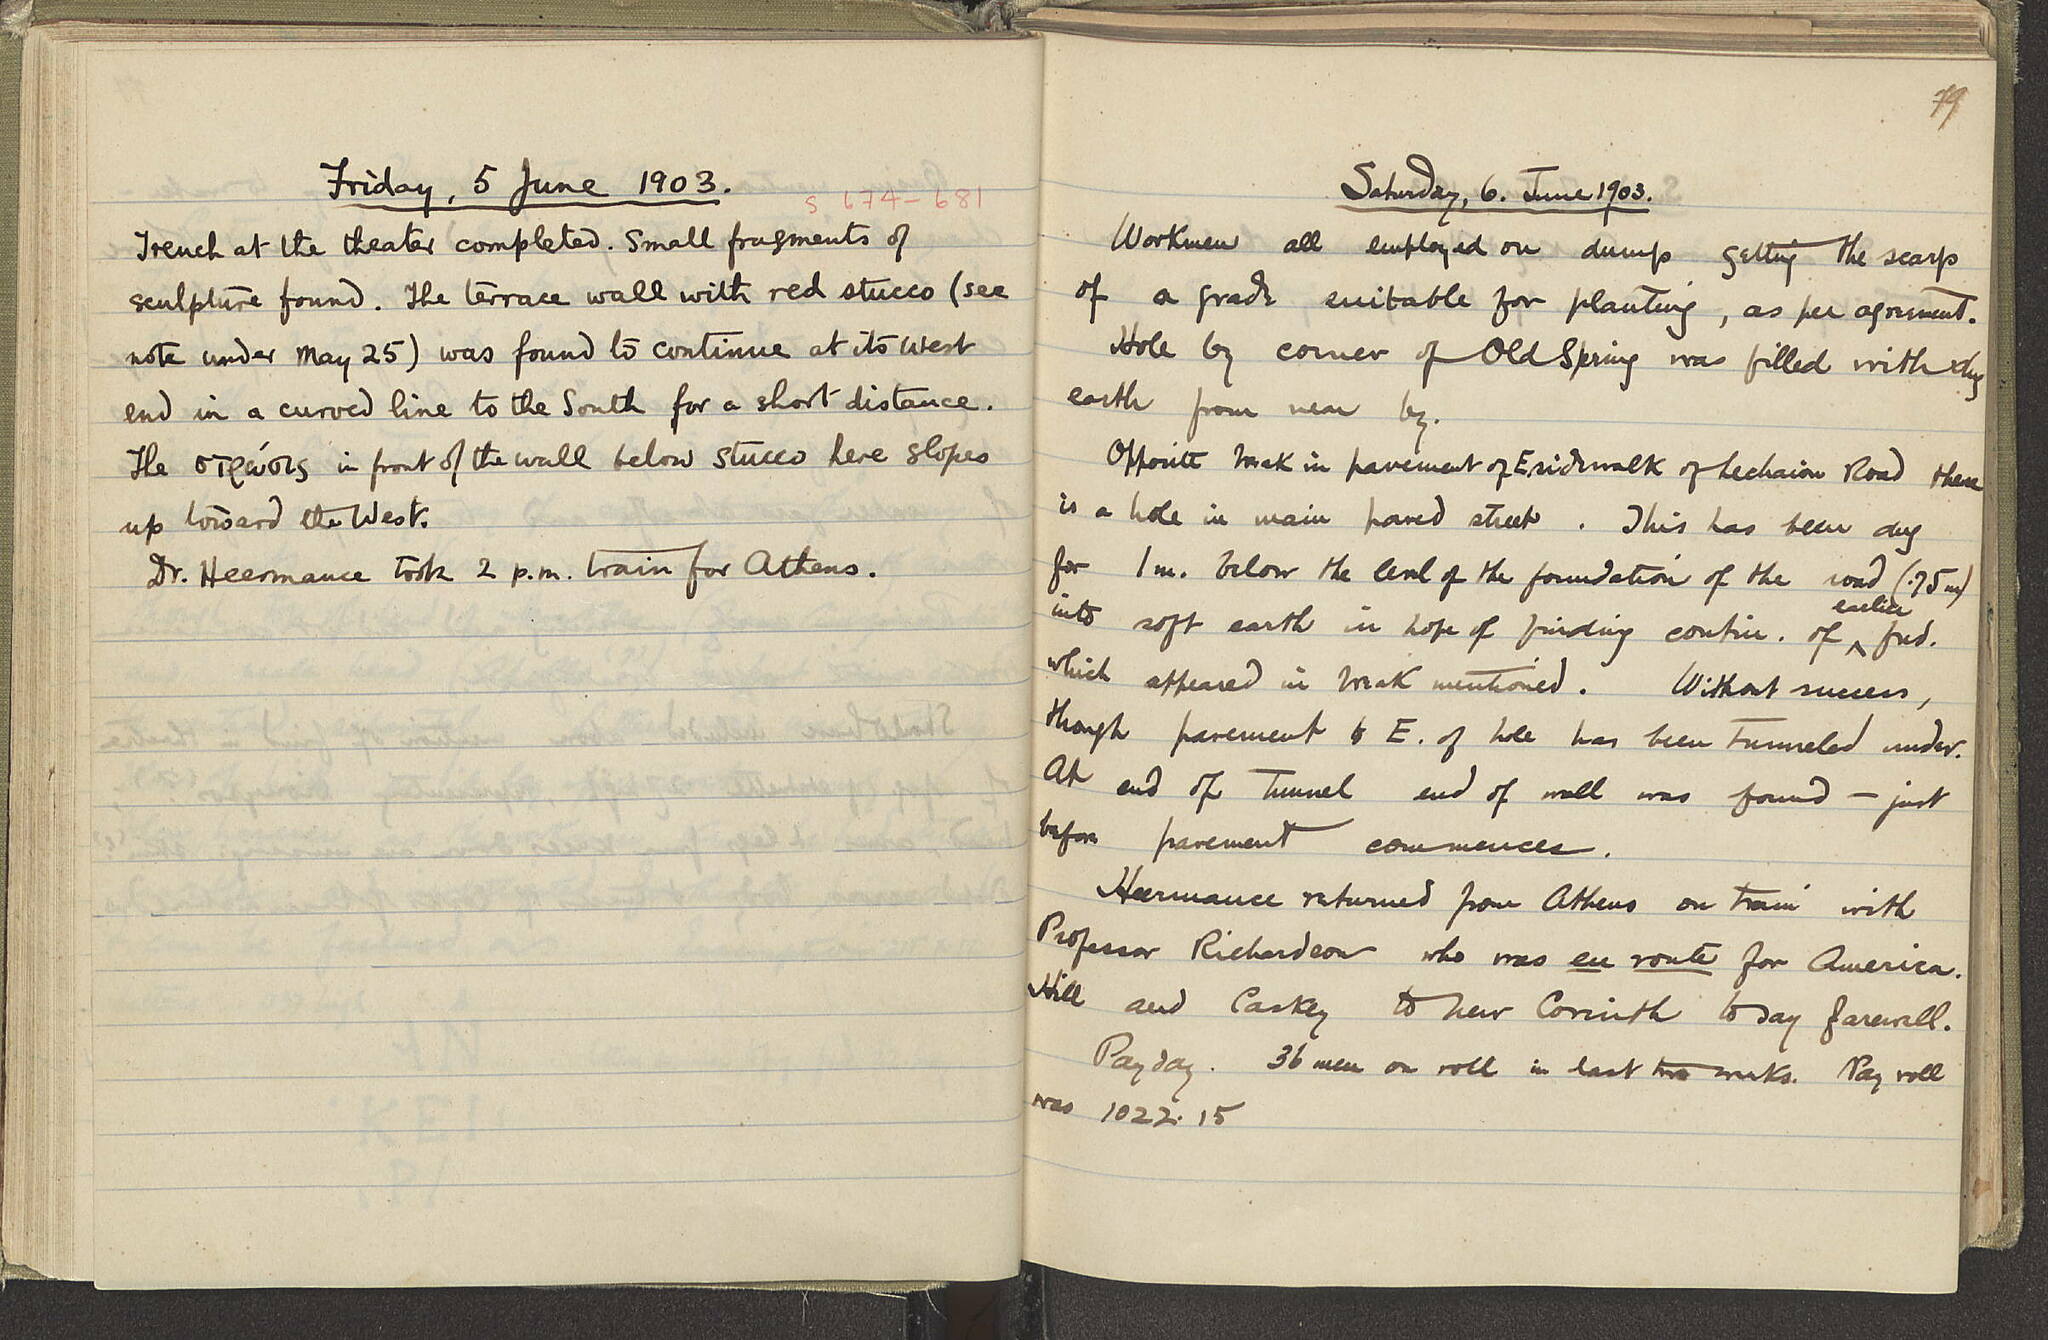 Friday, 5 June 1903.
S 674-681
Trench at the theater completed. Small fragments of
sculpture found. The terrace wall with red stucco (see
note under May 25) was found to continue at its West
end in a curved line to the South for a short distance.
The στρῶσις in front of the wall below stucco here slopes
up toward the West.
Dr. Heermance took 2 p.m. train for Athens.
79
Saturday, 6. June 1903.
Workmen all employed on dump getting the scarp
of a grade suitable for planting, as per agreement.
Hole by corner of Old Spring was filled with dug
earth from near by.
Opposite break in pavement of E sidewalk of Lechaion Road there
is a hole in main paved street. This has been dug
for 1 m. below the level of the foundation of the road (.75 m)
into soft earth in hope of finding contin. of ^ earlier fnd.
which appeared in break mentioned. Without success,
though pavement to E. of hole has been tunneled under.
At end of tunnel end of wall was found — just
before pavement commences.
Heermance returned from Athens on train with
Professor Richardson who was en route for America.
Hill and Caskey to New Corinth to say farewell.
Payday. 36 men on roll in last two weeks. Pay roll
was 1022.15